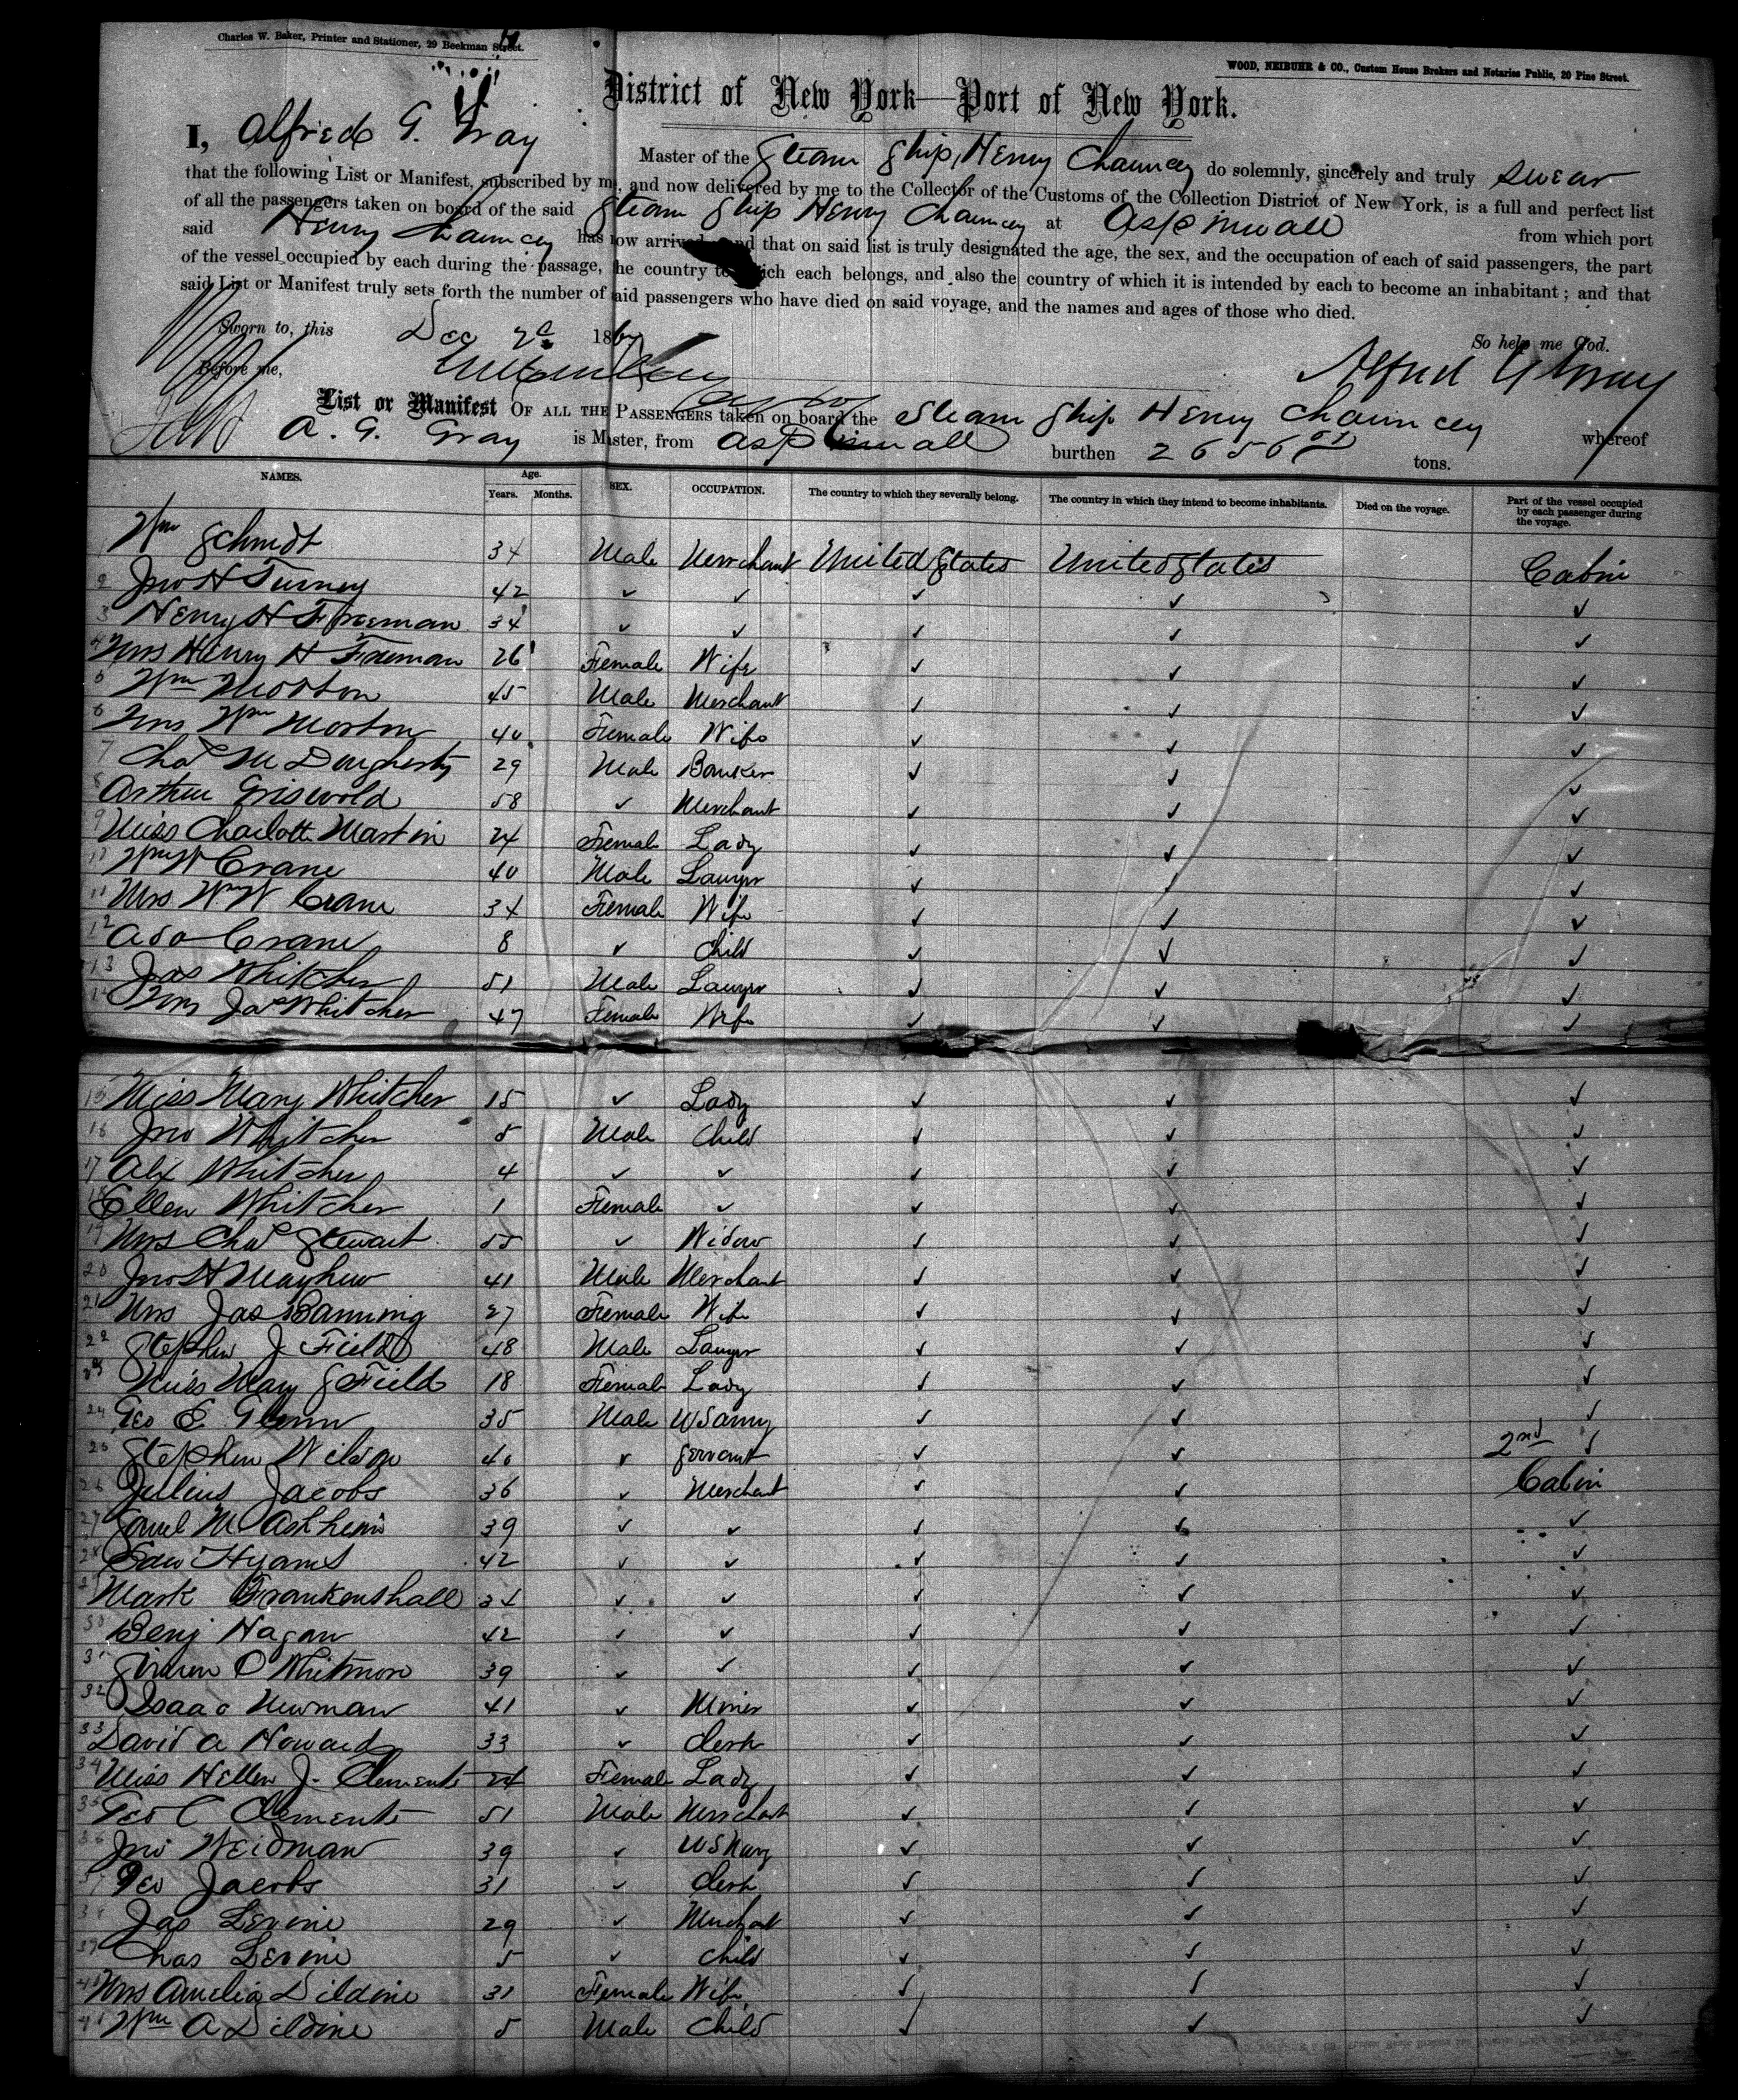 Charles W. Baker, Printer and Stationer, 29 Beekman Street.
WOOD, NEIBUHR & CO., Custom House Brokers and Notaries Public, 20 Pine Street.
District of New York—Port of New York.
I, Alfred G. Gray Master of the Steam Ship, Henry Chauncey do solemnly, sincerely and truly swear
that the following List or Manifest, subscribed by me, and now delivered by me to the Collector of the Customs of the Collection District of New York, is a full and perfect list
of all the passengers taken on board of the said Steam Ship Henry Chauncey at Aspinwall from which port
said Henry Chauncey has now arrived, and that on said list is truly designated the age, the sex, and the occupation of each of said passengers, the part
of the vessel occupied by each during the passage, the country to which each belongs, and also the country of which it is intended by each to become an inhabitant; and that
said List or Manifest truly sets forth the number of said passengers who have died on said voyage, and the names and ages of those who died.
Sworn to, this Dec 2d 186 So help me God.
Before me, Alfred G Gray
List or Manifest OF ALL THE PASSENGERS taken on board the Steam Ship Henry Chauncey whereof
A. G. Gray is Master, from Aspinwall burthen 2656 tons.
NAMES. Age. Years. Months. SEX. OCCUPATION. The country to which they severally belong. The country in which they intend to become inhabitants. Died on the voyage. Part of the vessel occupied by each passenger during the voyage.
Wm Schmidt 34 Male Merchant United States United States Cabin
2 Jno H Turney 42 ✓ ✓ ✓ ✓ ✓
3 Henry H Freeman 34 ✓ ✓ ✓ ✓ ✓
4 Mrs Henry H Freeman 26 Female Wife ✓ ✓ ✓
5 Wm Morton 45 Male Merchant ✓ ✓ ✓
6 Mrs Wm Morton 40 Female Wife ✓ ✓ ✓
7 Chas McDougherty 29 Male Banker ✓ ✓ ✓
8 Arthur Griswold 58 ✓ Merchant ✓ ✓ ✓
9 Miss Charlotte Martin 24 Female Lady ✓ ✓ ✓
10 Wm W Crane 40 Male Lawyer ✓ ✓ ✓
11 Mrs Wm W Crane 34 Female Wife ✓ ✓ ✓
12 Ada Crane 8 ✓ Child ✓ ✓ ✓
13 Jas Whitcher 51 Male Lawyer ✓ ✓ ✓
14 Mrs Jas Whitcher 47 Female Wife ✓ ✓ ✓
15 Miss Mary Whitcher 15 ✓ Lady ✓ ✓ ✓
16 Jno Whitcher 8 Male Child ✓ ✓ ✓
17 Alx Whitcher 4 ✓ ✓ ✓ ✓ ✓
18 Ellen Whitcher 1 Female ✓ ✓ ✓ ✓
19 Mrs Chas Stewart 55 ✓ Widow ✓ ✓ ✓
20 Jno H Mayhew 41 Male Merchant ✓ ✓ ✓
21 Mrs Jas Banning 27 Female Wife ✓ ✓ ✓
22 Stephen J Field 48 Male Lawyer ✓ ✓ ✓
23 Miss Mary S Field 18 Female Lady ✓ ✓ ✓
24 Geo E Glenn 35 Male U S Army ✓ ✓ ✓
25 Stephen Wilson 40 ✓ Servant ✓ ✓ 2nd ✓
26 Julius Jacobs 36 ✓ Merchant ✓ ✓ Cabin
27 Saml M Ashheim 39 ✓ ✓ ✓ ✓ ✓
28 Edw Hyams 42 ✓ ✓ ✓ ✓ ✓
29 Mark Frankenshall 34 ✓ ✓ ✓ ✓ ✓
30 Benj Hagan 42 ✓ ✓ ✓ ✓ ✓
31 O Whitmore 39 ✓ ✓ ✓ ✓ ✓
32 Isaac Newman 41 ✓ Miner ✓ ✓ ✓
33 David A Howard 33 ✓ Clerk ✓ ✓ ✓
34 Miss Hellen J. Clements 24 Female Lady ✓ ✓ ✓
35 Geo C Clements 51 Male Merchant ✓ ✓ ✓
36 Jno Weidman 39 ✓ U S Navy ✓ ✓ ✓
37 Geo Jacobs 31 ✓ Clerk ✓ ✓ ✓
38 Jas Levine 29 ✓ Merchant ✓ ✓ ✓
39 Chas Levine 5 ✓ Child ✓ ✓ ✓
40 Mrs Amelia Dildine 31 Female Wife ✓ ✓ ✓
41 Wm A Dildine 5 Male Child ✓ ✓ ✓